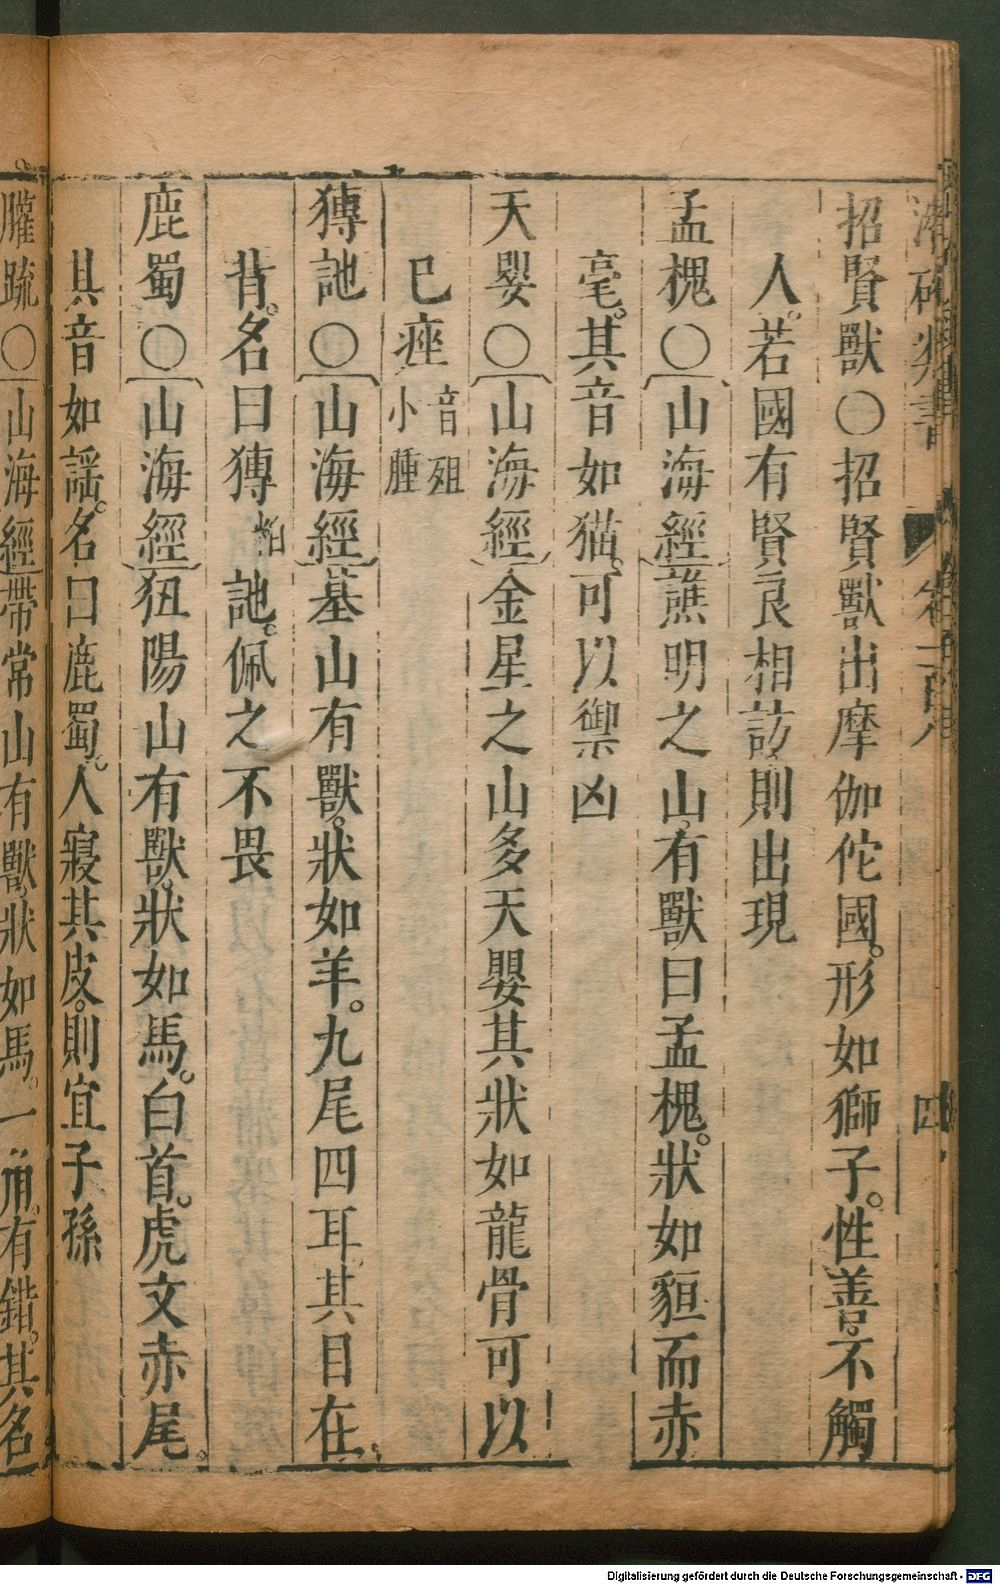 潛確類書
卷一百
四
招賢獸〇招賢獸出摩伽佗國。形如獅子。性善。不觸
人。若國有賢良相訪則出現
孟槐〇山海經譙明之山。有獸曰孟槐。狀如貆而赤
毫。其音如猫。可以禦凶
天嬰〇山海經金星之山多天嬰其狀如龍骨可以
已痤音殂小腫
猼訑〇山海經基山有獸。狀如羊。九尾四耳其目在
背。名曰猼訑。佩之不畏
鹿蜀〇山海經狃陽山有獸。狀如馬。白首。虎文赤尾。
其音如謡。名曰鹿蜀。人寢其皮。則宜子孫
䑏疏〇山海經帶常山有獸。狀如馬。一角。有錯。其名
Digitalisierung gefördert durch die Deutsche Forschungsgemeinschaft - DFG